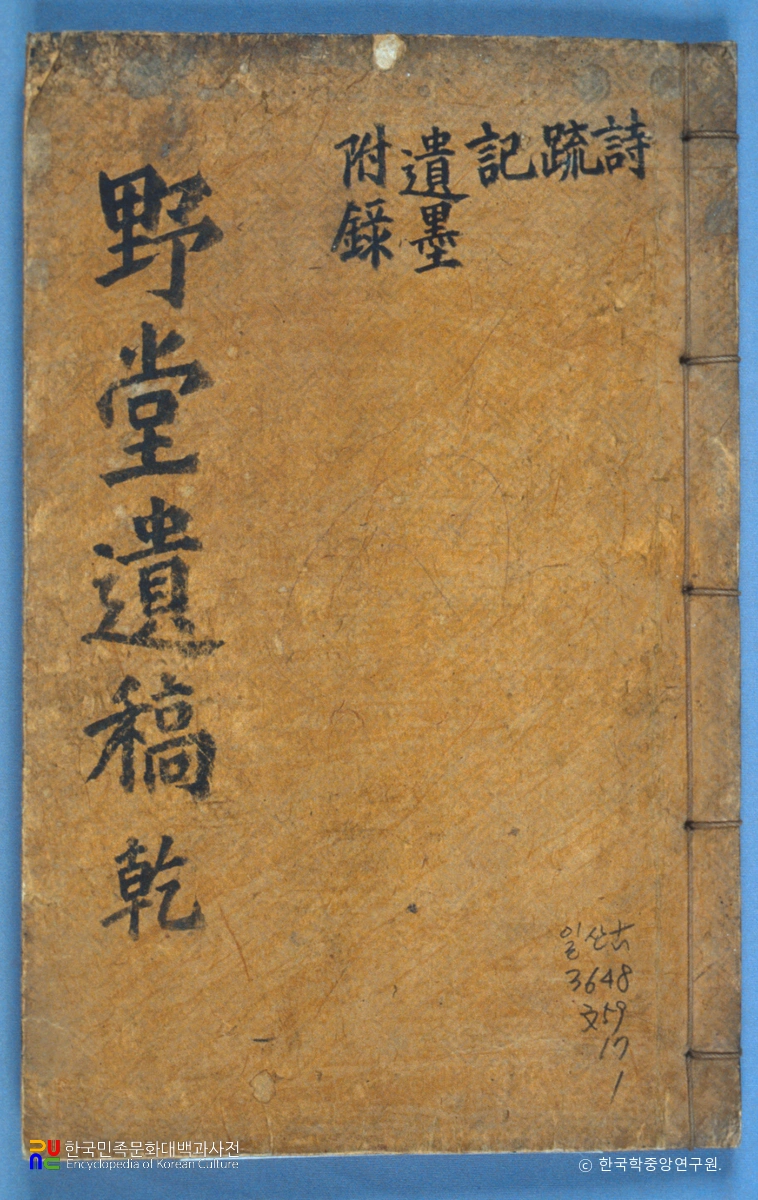 詩
疏
記
遺墨
附錄
野堂遺稿 乾
일산古
3648
文59
17
1
한국민족문화대백과사전
Encyclopedia of Korean Culture
© 한국학중앙연구원.